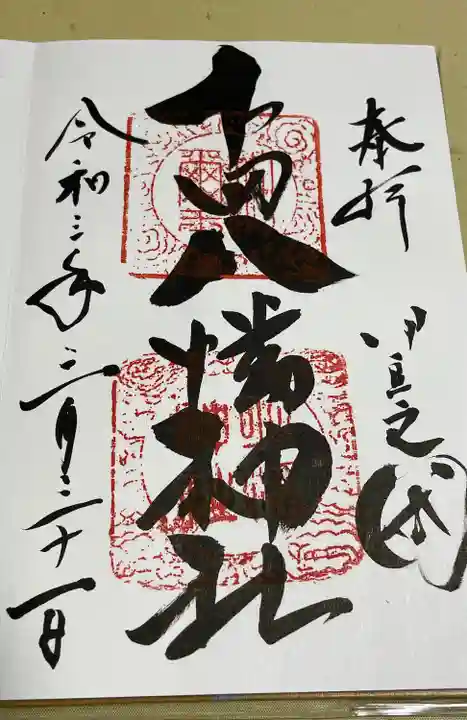 奉拝
伊豆之国
八幡神社
令和三年三月三十一日